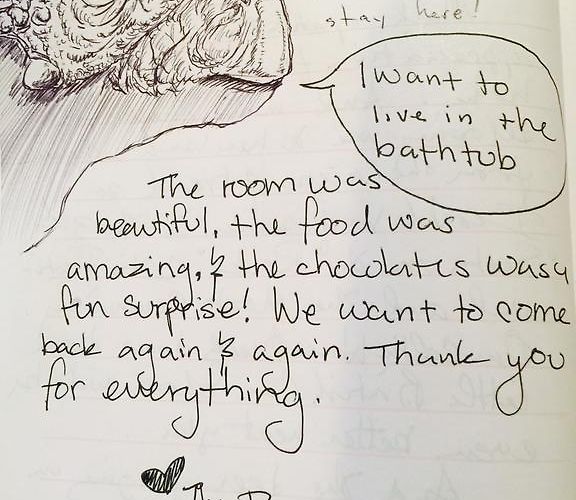 stay here!
I want to
live in the
bathtub
The room was
beautiful, the food was
amazing, & the chocolates was a
fun surprise! We want to come
back again & again. Thank you
for everything.